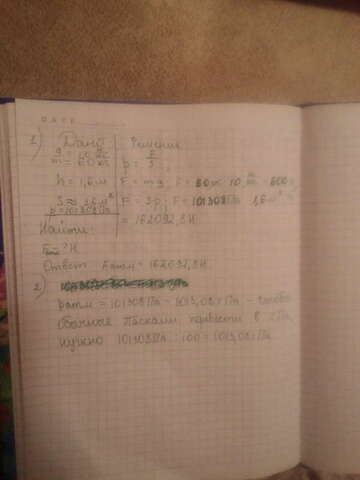 1) Дано: Решение
g = 10
m = 60 кг p = F/S
h = 1,6 м F = mg, F = 60 кг 10 = 600
S ≈ 1,6 м² F = Sp, F = 101308 Па · 1,6 м²
p = 101308 Па = 162092,8 Н
Найти:
F - ? Н
Ответ Fатм = 162092,8 Н
2)
pатм = 101308 Па = 1013,08 гПа - чтобы
обычные Паскали перевести в гПа,
нужно 101308 Па : 100 = 1013,08 гПа